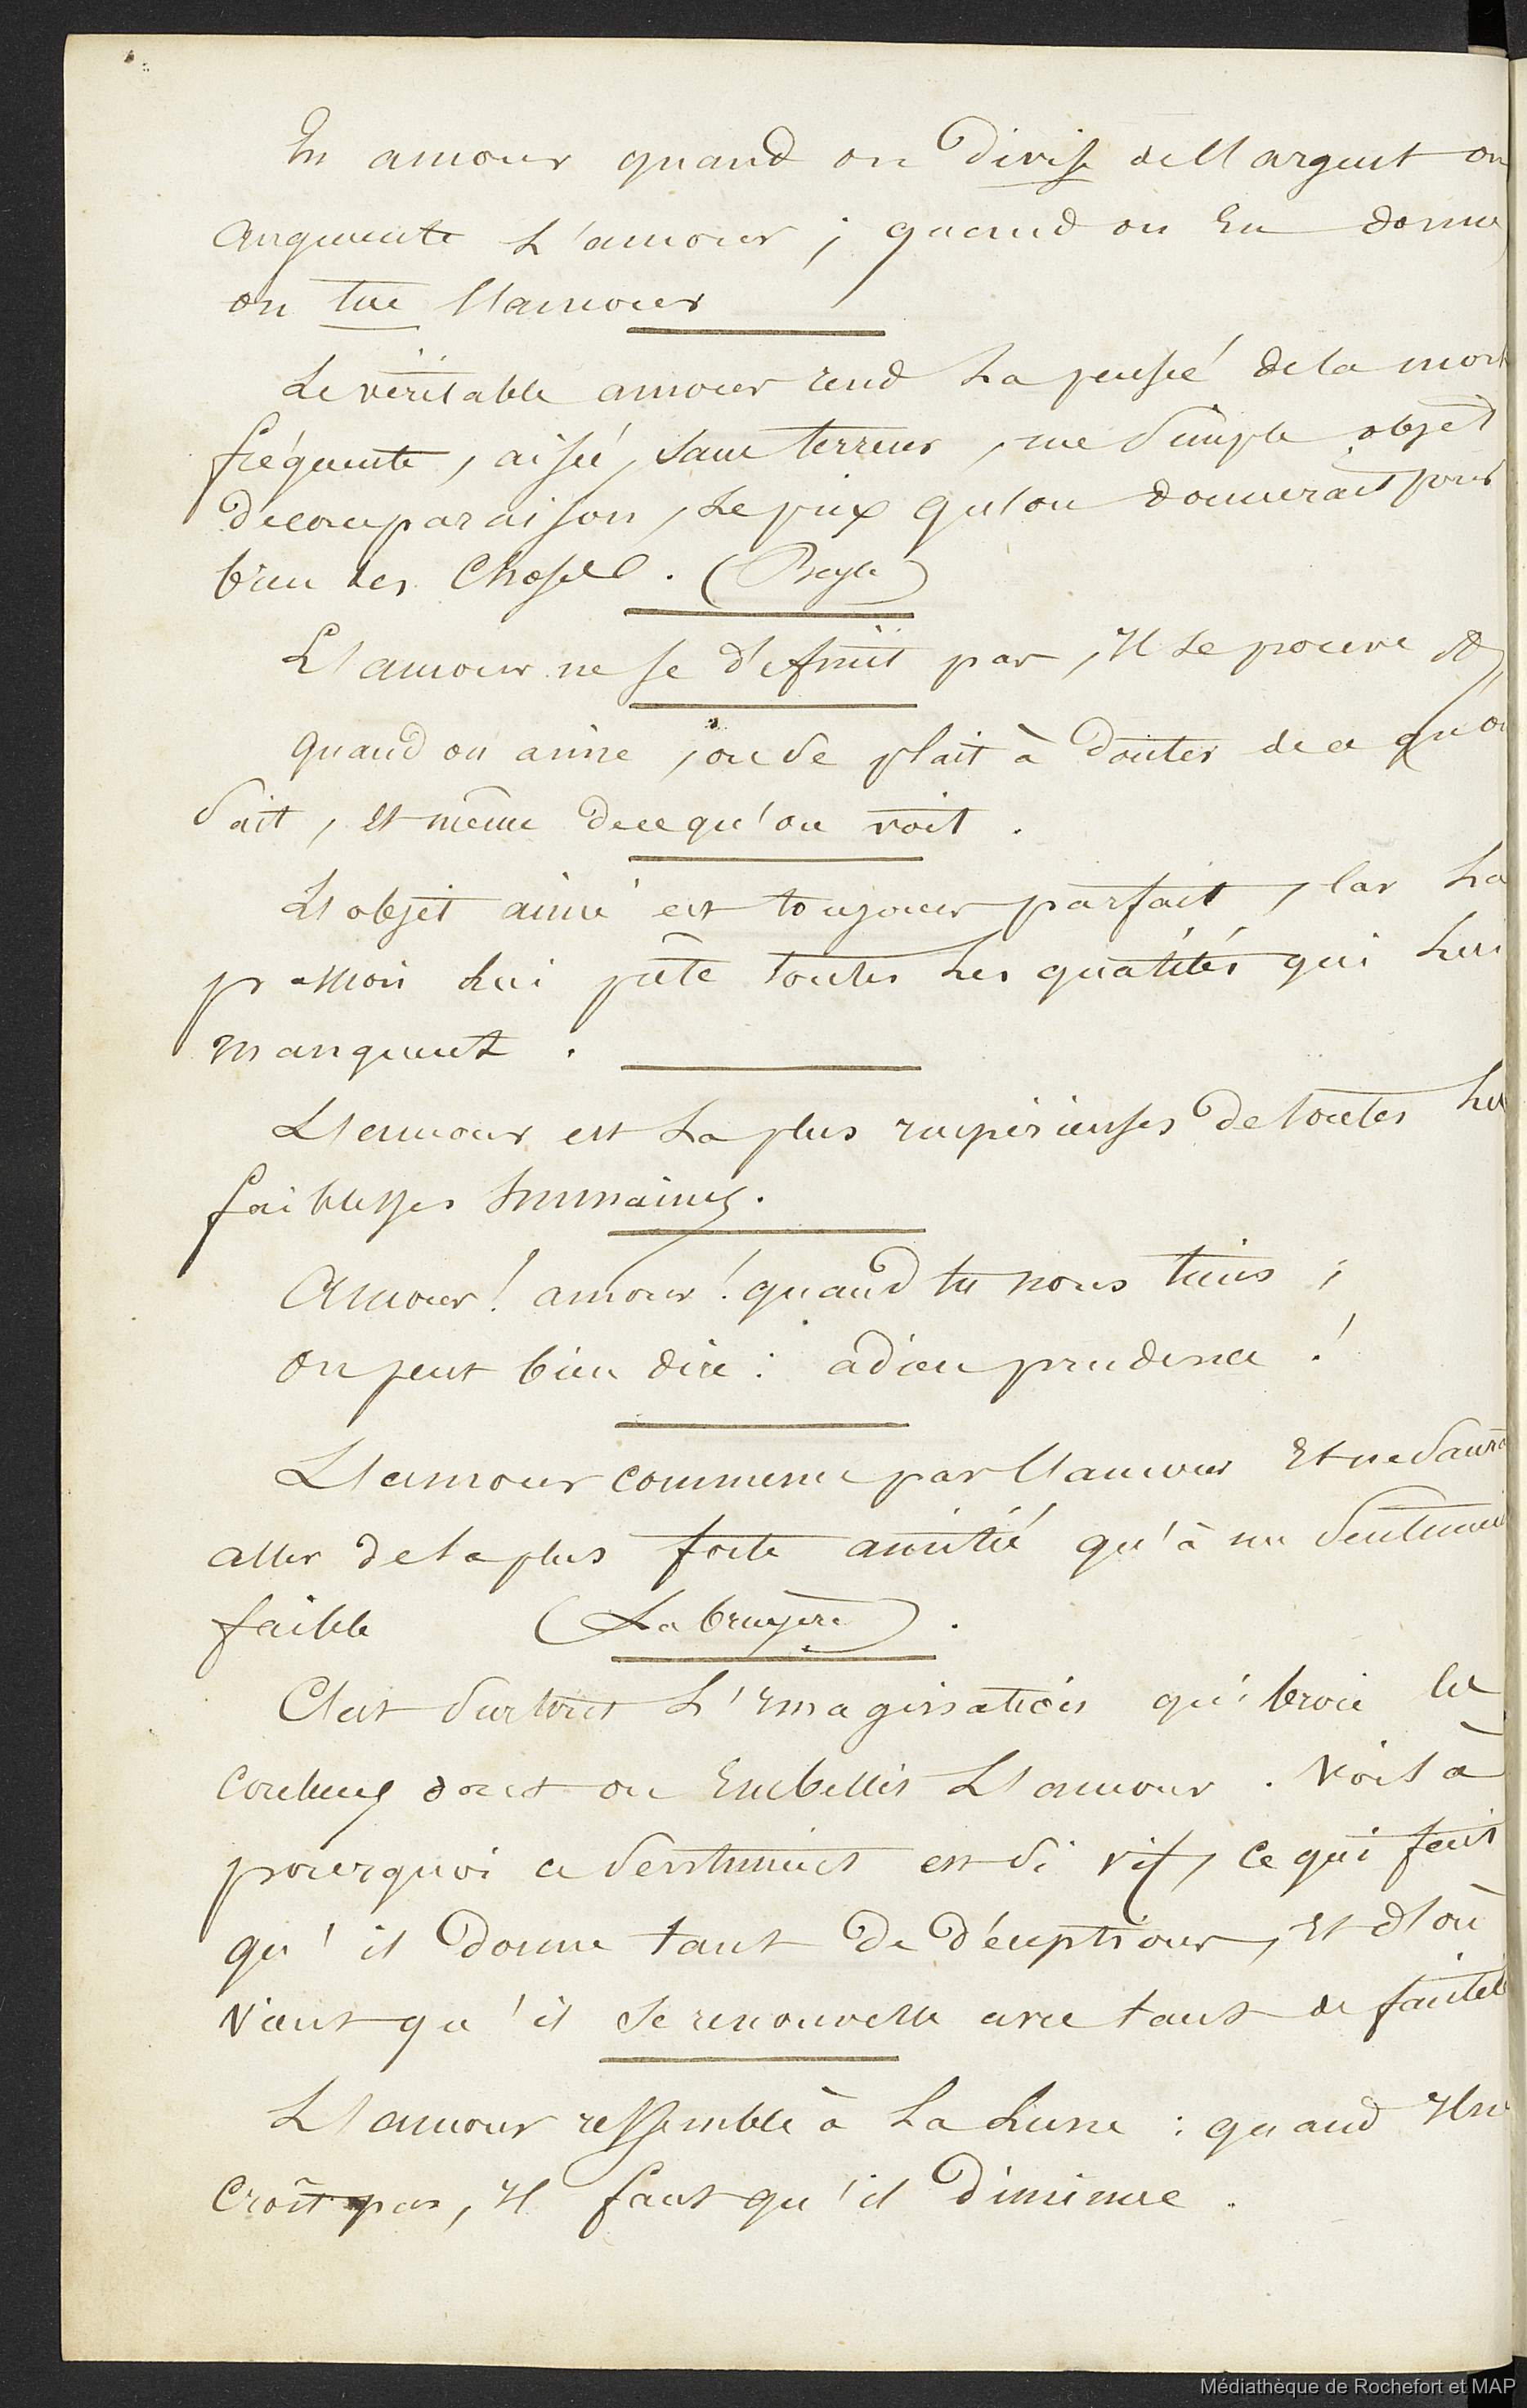 En amour quand on divise de l'argent on
augmente L'amour ; quand on En donne
on tue l'amour
Le véritable amour rend La pensée de la mort
fréquente, aisée, sans terreur, une Simple objet
de comparaison, Le prix qu'on donnerait pour
bien des Choses. (Beyle)
L'amour ne se définit pas, Il se prouve
quand on aime, on se plait à Douter de ce qu'on
Sait, Et même de ce qu'on voit.
L'objet aimé est toujours parfait, Car La
passion Lui prête toutes Les qualités qui Lui
manquent.
L'amour est La plus impérieuses de toutes Les
faiblesses humaines.
Amour! amour! quand tu nous tiens ;
On peut bien dire : adieu prudence !
L'amour commence par l'amour Et ne Saurait
aller de La plus forte amitié qu'à un Sentiment
faible (La bruyère).
C'est Surtout L'Imagination qui broie les
Couleurs dont on Embellis L'amour. Voilà
pourquoi ce Sentiment est Si vif, Ce qui fait
qu'il Donne tant De Déceptions, Et d'où
Vient qu'il Se renouvelle avec tant de
L'amour ressemble à La Lune : quand Il ne
Croît pas, Il faut qu'il Diminue.
Médiathèque de Rochefort et MAP